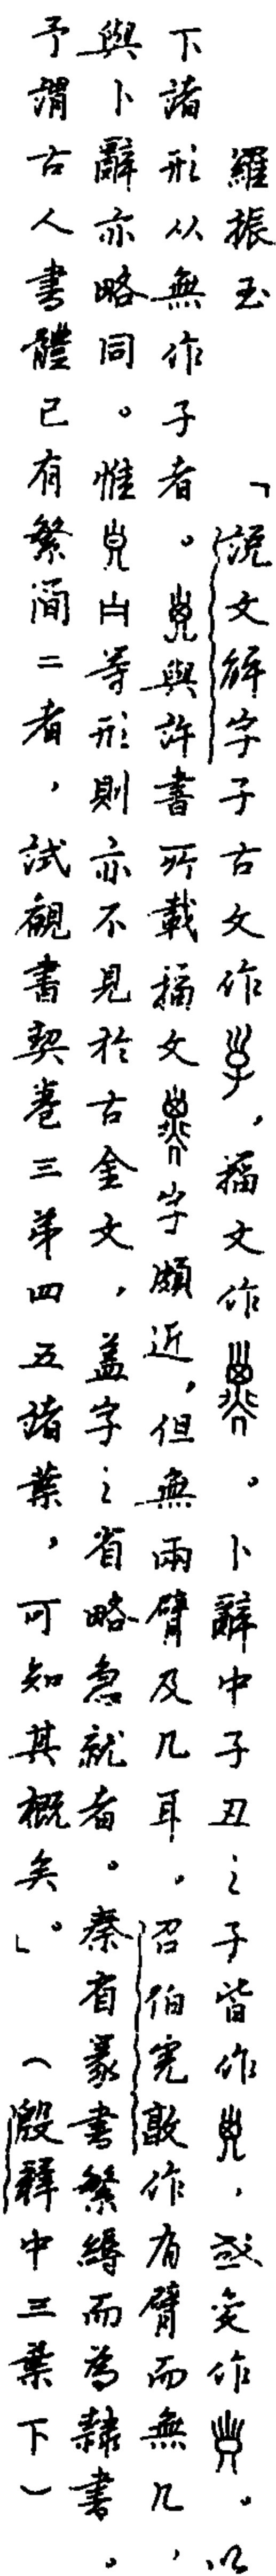 羅振玉　「說文解字子古文作，籀文作。卜辭中子丑之子皆作，或變作。以
下諸形从無作子者。與許書所載籀文字頗近，但無兩臂及几耳。召伯𡧊敦作有臂而無几，
與卜辭亦略同。惟等形則亦不見於古金文，蓋字之省略急就者。秦有篆書繁縟而為隸書。
予謂古人書體已有繁簡二者，試觀書契卷三第四五諸葉，可知其概矣。」（殷釋中三葉下）